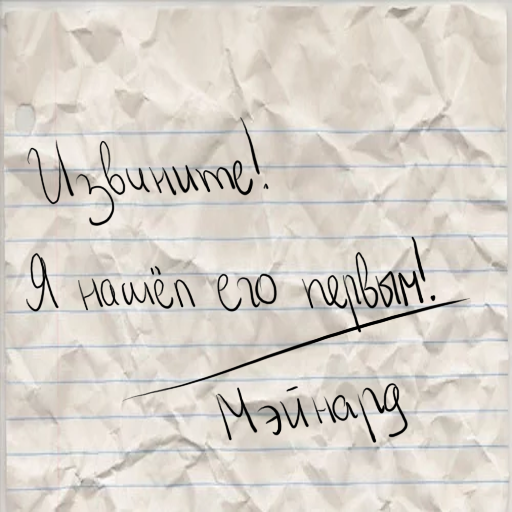 Извините!
Я нашёл его первым!
Мэйнард